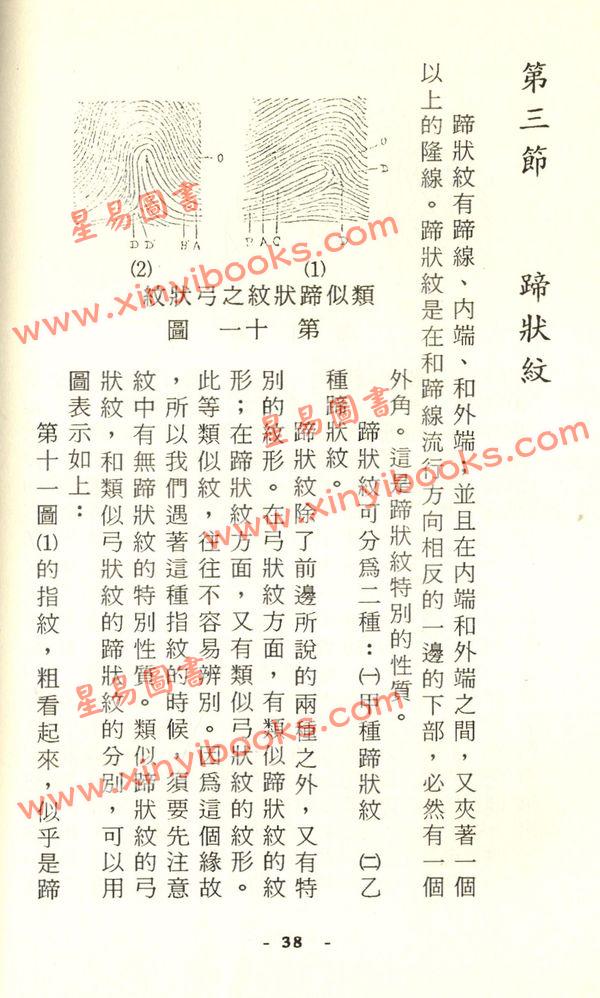 第三節　蹄狀紋
蹄狀紋有蹄線、內端、和外端，並且在內端和外端之間，又夾著一個
以上的隆線。蹄狀紋是在和蹄線流行方向相反的一邊的下部，必然有一個
外角。這是蹄狀紋特別的性質。
蹄狀紋可分爲二種：㈠甲種蹄狀紋　㈡乙
種蹄狀紋。
蹄狀紋除了前邊所說的兩種之外，又有特
別的紋形。在弓狀紋方面，有類似蹄狀紋的紋
形；在蹄狀紋方面，又有類似弓狀紋的紋形。
此等類似紋，往往不容易辨別。因爲這個緣故
，所以我們遇著這種指紋的時候，須要先注意
紋中有無蹄狀紋的特別性質。類似蹄狀紋的弓
狀紋，和類似弓狀紋的蹄狀紋的分別，可以用
圖表示如上：
第十一圖⑴的指紋，粗看起來，似乎是蹄
O
D
A C
D
⑴
O
D D'
A
⑵
類似蹄狀紋之弓狀紋
第十一圖
- 38 -
星易圖書
www.xinyibooks.com
星易圖書
www.xinyibooks.com
星易圖書
www.xinyibooks.com